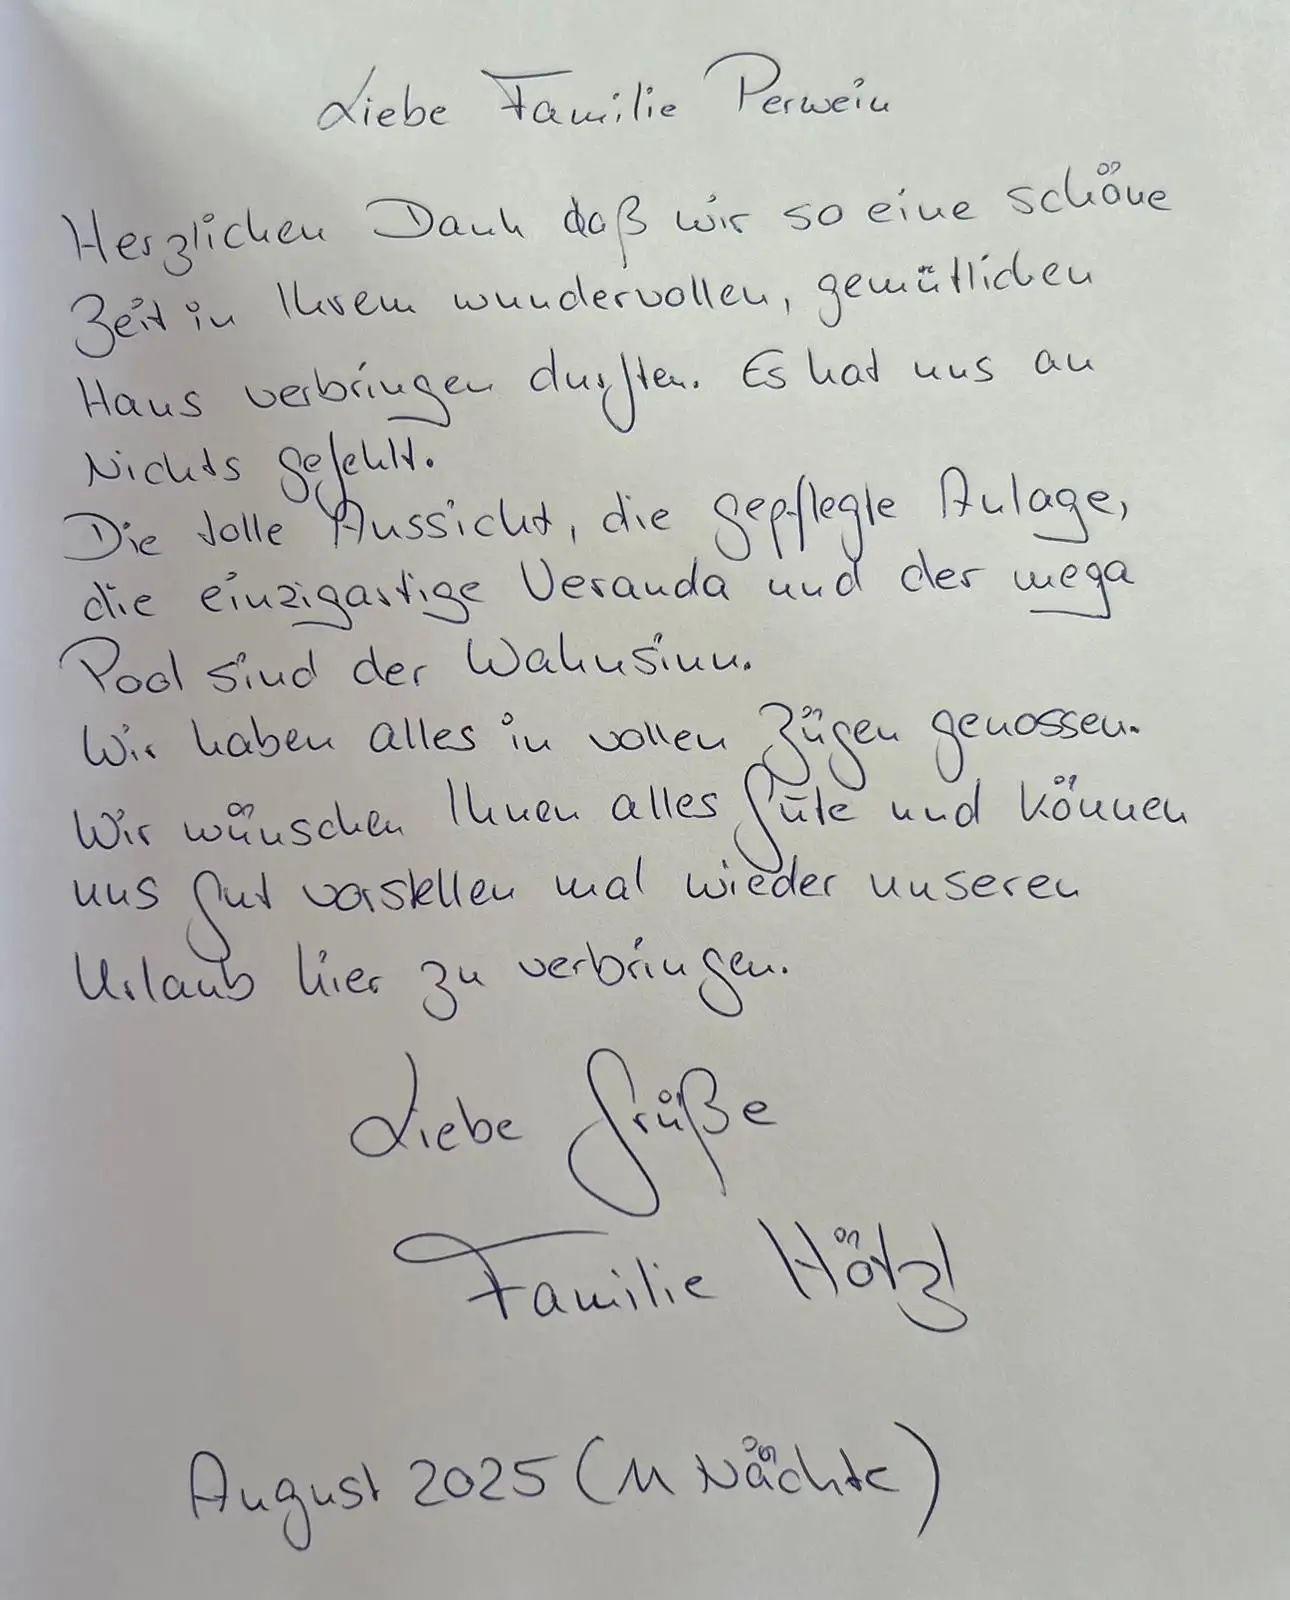 Liebe Familie Perwein
Herzlichen Dank daß wir so eine schöne
Zeit in Ihrem wundervollen, gemütlichen
Haus verbringen durften. Es hat uns an
Nichts gefehlt.
Die tolle Aussicht, die gepflegte Anlage,
die einzigartige Veranda und der mega
Pool sind der Wahnsinn.
Wir haben alles in vollen Zügen genossen.
Wir wünschen Ihnen alles Gute und können
uns gut vorstellen mal wieder unseren
Urlaub hier zu verbringen.
Liebe Grüße
Familie Hötzl
August 2025 (11 Nächte)